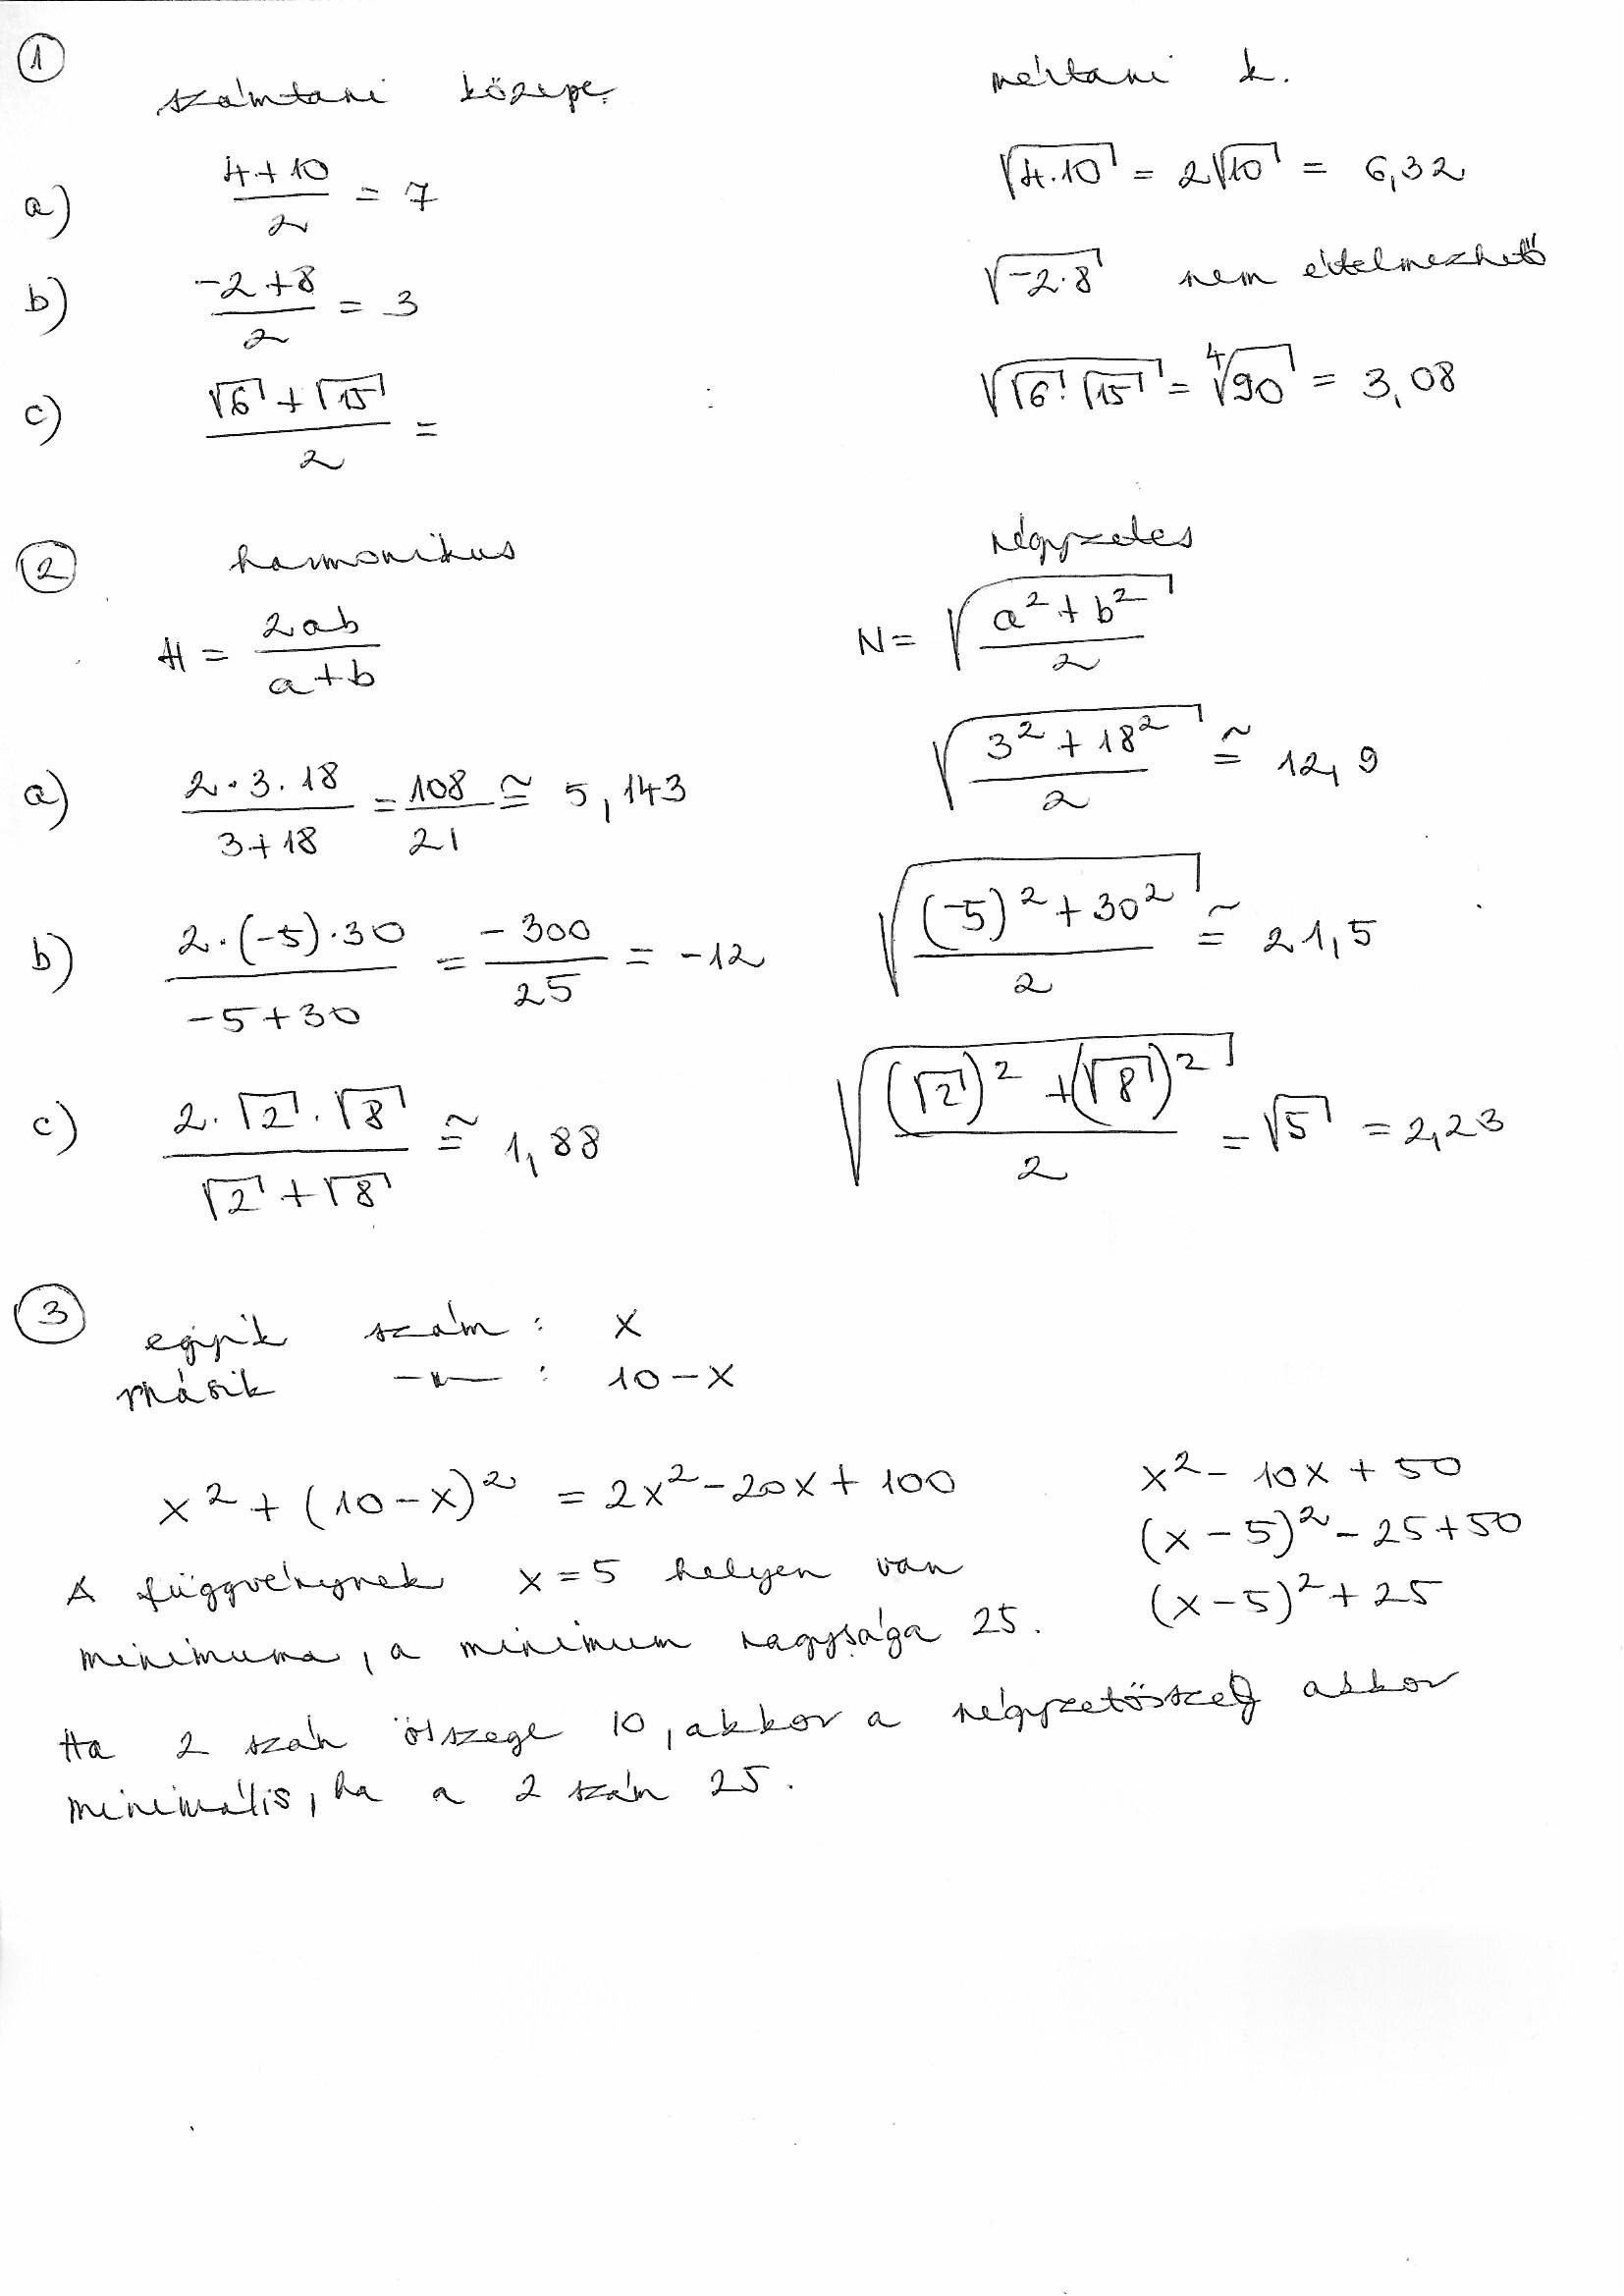 1
számtani közepe
mértani k.
a) (4+10)/2 = 7
√(4·10) = 2√10 = 6,32
b) (-2+8)/2 = 3
√(-2·8) nem értelmezhető
c) (√6+√15)/2 =
√(√6·√15) = ⁴√90 = 3,08
2
harmonikus
négyzetes
H = 2ab/(a+b)
N = √((a²+b²)/2)
a) (2·3·18)/(3+18) = 108/21 ≅ 5,143
√((3²+18²)/2) ≅ 12,9
b) (2·(-5)·30)/(-5+30) = -300/25 = -12
√(((-5)²+30²)/2) ≅ 21,5
c) (2·√2·√8)/(√2+√8) ≅ 1,88
√(((√2)²+(√8)²)/2) = √5 = 2,23
3
egyik szám : x
másik —〃— : 10-x
x²+(10-x)² = 2x²-20x+100
A függvénynek x=5 helyen van
minimuma, a minimum nagysága 25.
x²-10x+50
(x-5)²-25+50
(x-5)²+25
Ha 2 szám összege 10, akkor a négyzetösszeg akkor
minimális, ha a 2 szám 25.